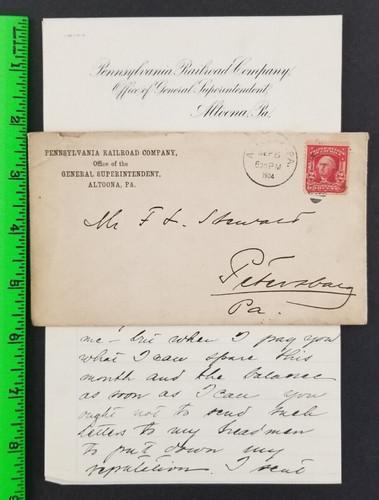 Pennsylvania Railroad Company,
Office of General Superintendent,
Altoona, Pa.
PENNSYLVANIA RAILROAD COMPANY,
Office of the
GENERAL SUPERINTENDENT,
ALTOONA, PA.
PA.
5
PM
1904
Mr F L Stewart
Petersburg
Pa.
me - but when I pay you
what I can spare this
month and the balance
as soon as I can you
ought not to send such
letters to my
to put down my
reputation. I sent
1
2
3
4
5
6
7
8
9